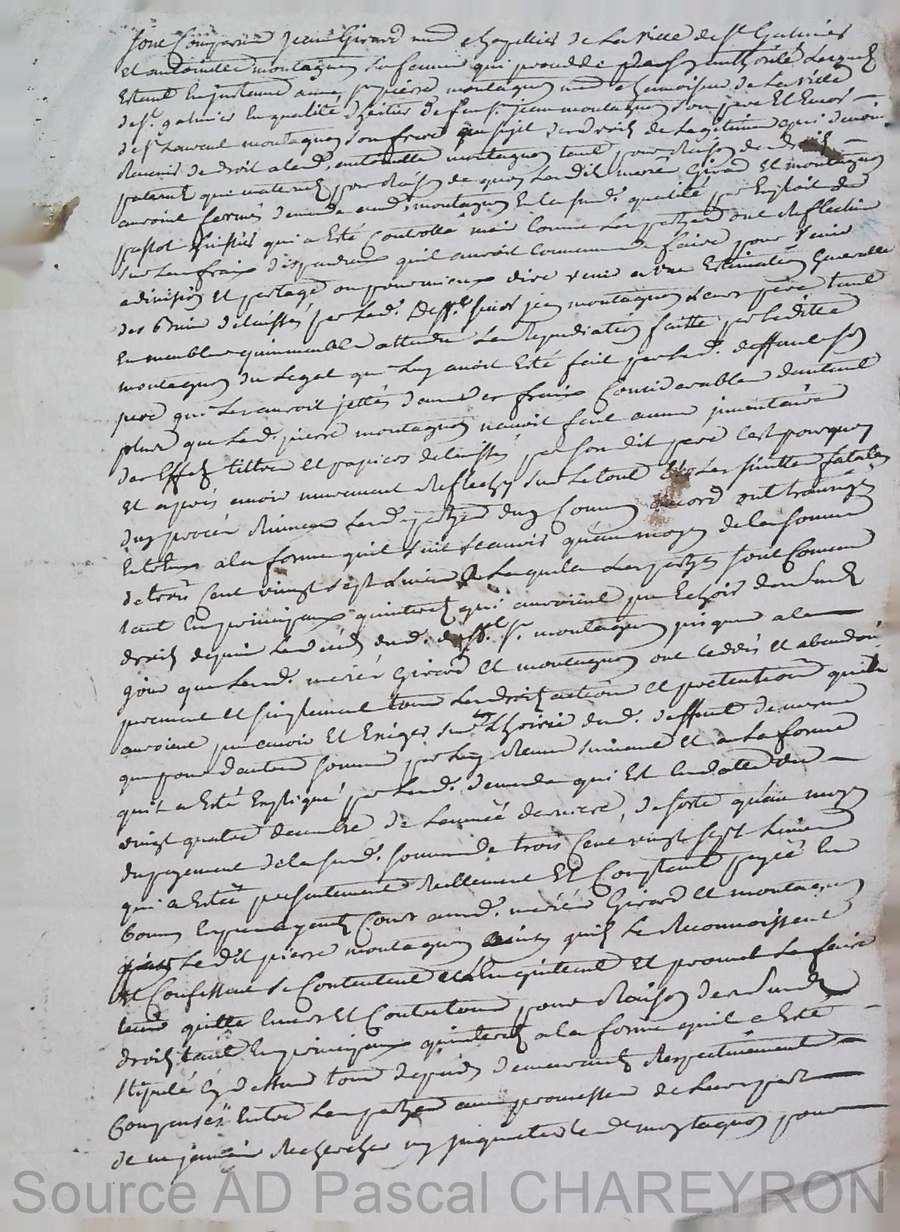 sont Comparus jean Girard md chapellier de La ville de St Galmier
et antoinette montagnon sa femme qui procedde de luy authorisé Lesquels
Estant En instance avec pierre montagnon md chamoiseur de La ville
de st galmier En qualité d'heritier de feu sr jean montagnon son pere Et Encor
de st Laurent montagnon son frere au sujet des droits de Legitime qui devoit
Revenir de droit a lad. antoinette montagnon tant pour Raison des droits
paternels qui maternels pour Raison de quoy Lesdits mariés Girard et montagnon
auroint formés demande aud. montagnon En la susd. qualité par Exploit de
huissier qui a Esté Controllé mais Comme Les parties ont Reflection
sur Les fraix qu'il auroit Convenu de faire pour venir
a division et partage ou pour mieux dire venir a une Estimation Generalle
des Biens delaissés par Led. deffunt sieur jean montagnon Leur pere tant
En meubles qu'immeubles attendu La Repudiation faitte par laditte
montagnon du Legat que Luy avoit Esté fait par Led. deffunt son
pere qui Les auroit jettés dans des fraix Considerables d'autant
plus que Led. pierre montagnon n'avoit fait aucun inventaire
des Effets tittres et papiers delaissés par son dit pere C'est pourquoy
Et après avoir murement Reflechy sur Le tout Et Les suittes fatales
d'un procès Ruineux Lesd. parties d'un Commun accord ont transigé
a la forme qu'il suit scavoir qu'au moyen de la somme
de trois Cent vingt sept Livres a Laquelle Les parties sont Convenu
tant En principaux qu'interets qui auroient pu Echoir desdits
droits depuis Le deces dud. deffunt sr montagnon jusques a ce
jour que Lesd. mariés Girard et montagnon ont ceddés et abandonné
purement et simplement tous Les droits action et pretention qu'ils
auroient pu avoir Et Exiger sur L'hoirie dud. deffunt de meme
que pour d'autres sommes par Luy Reçue suivant et a La forme
qu'il a Esté Expliqué par Lad. demande qui Est En datte du
vingt quatre decembre de L'année derniere, de sorte qu'au moyen
du payement de la susd. somme de trois Cent vingt sept Livres
qui a Esté presentement Reellement Et Comptant payée En
bonnes Especes ayant Cours auxd. mariés Girard et montagnon
par Le dit pierre montagnon ainsy qu'ils Le Reconnoissent
et Confessent se Contentent et L'en quittent et promet Le faire
tenir quitte Envers Et Contre tous pour Raison desdits
droits tant En principaux qu'interets a la forme qu'il a Esté
stipulé Cy dessus tous depens demeurants Respectivement
Compensés Entre Les parties avec promesse de Leur part
de ne jamais Rechercher ny inquieter Led. montagnon pour
Source AD Pascal CHAREYRON